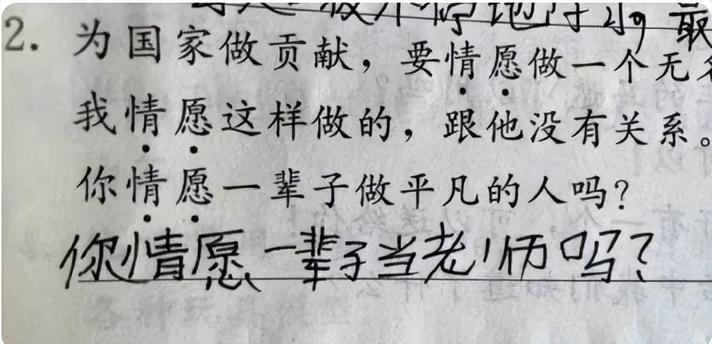 2. 为国家做贡献，要情愿做一个无
我情愿这样做的，跟他没有关系。
你情愿一辈子做平凡的人吗？
你情愿一辈子当老师吗？